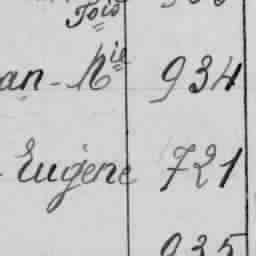 Fois
an - Nie 934
- Eugène 721
935